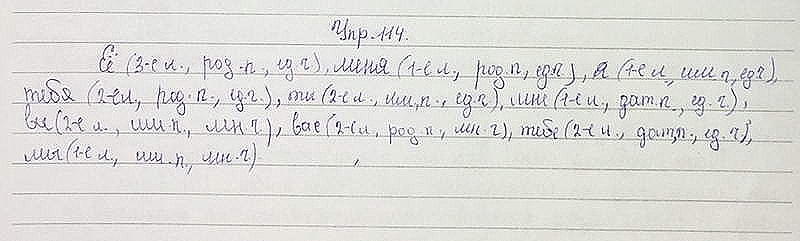 Упр. 114.
Её (3-е л., род. п., ед.ч), меня (1-е л., род. п, ед.ч.), я (1-е л., им. п, ед.ч),
тебя (2-е л., род. п., ед.ч.), ты (2-е л., им. п., ед.ч), мне (1-е л., дат. п., ед.ч.),
вы (2-е л., им. п., мн.ч.), вас (2-е л, род. п., мн.ч), тебе (2-е л., дат. п., ед.ч),
мы (1-е л., им. п, мн.ч)